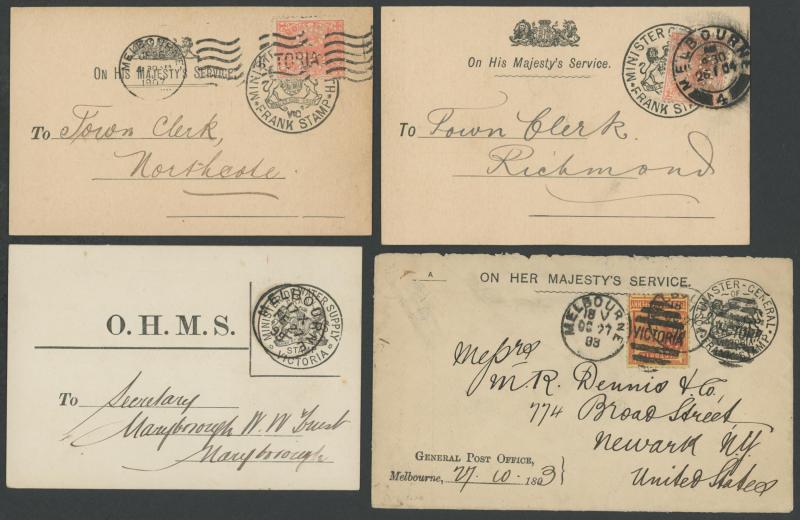 MELBOURNE
1907
TORIA
ON HIS MAJESTY'S SERVICE.
FRANK STAMP
VIC
To Town Clerk,
Northcote.
MINISTER
FRANK STAMP
MELBOURNE
4
On His Majesty's Service.
To Town Clerk
Richmond
MELBOURNE
WATER SUPPLY
VICTORIA
O.H.M.S.
To Secretary
Maryborough W.W Trust
Maryborough
A
ON HER MAJESTY'S SERVICE.
MELBOURNE
18 J
OC 27
93
VICTORIA
MASTER-GENERAL
OF
Messrs
M. R. Dennis & Co,
774 Broad Street
Newark N.Y.
United States
GENERAL POST OFFICE,
Melbourne, 27. 10. 1893